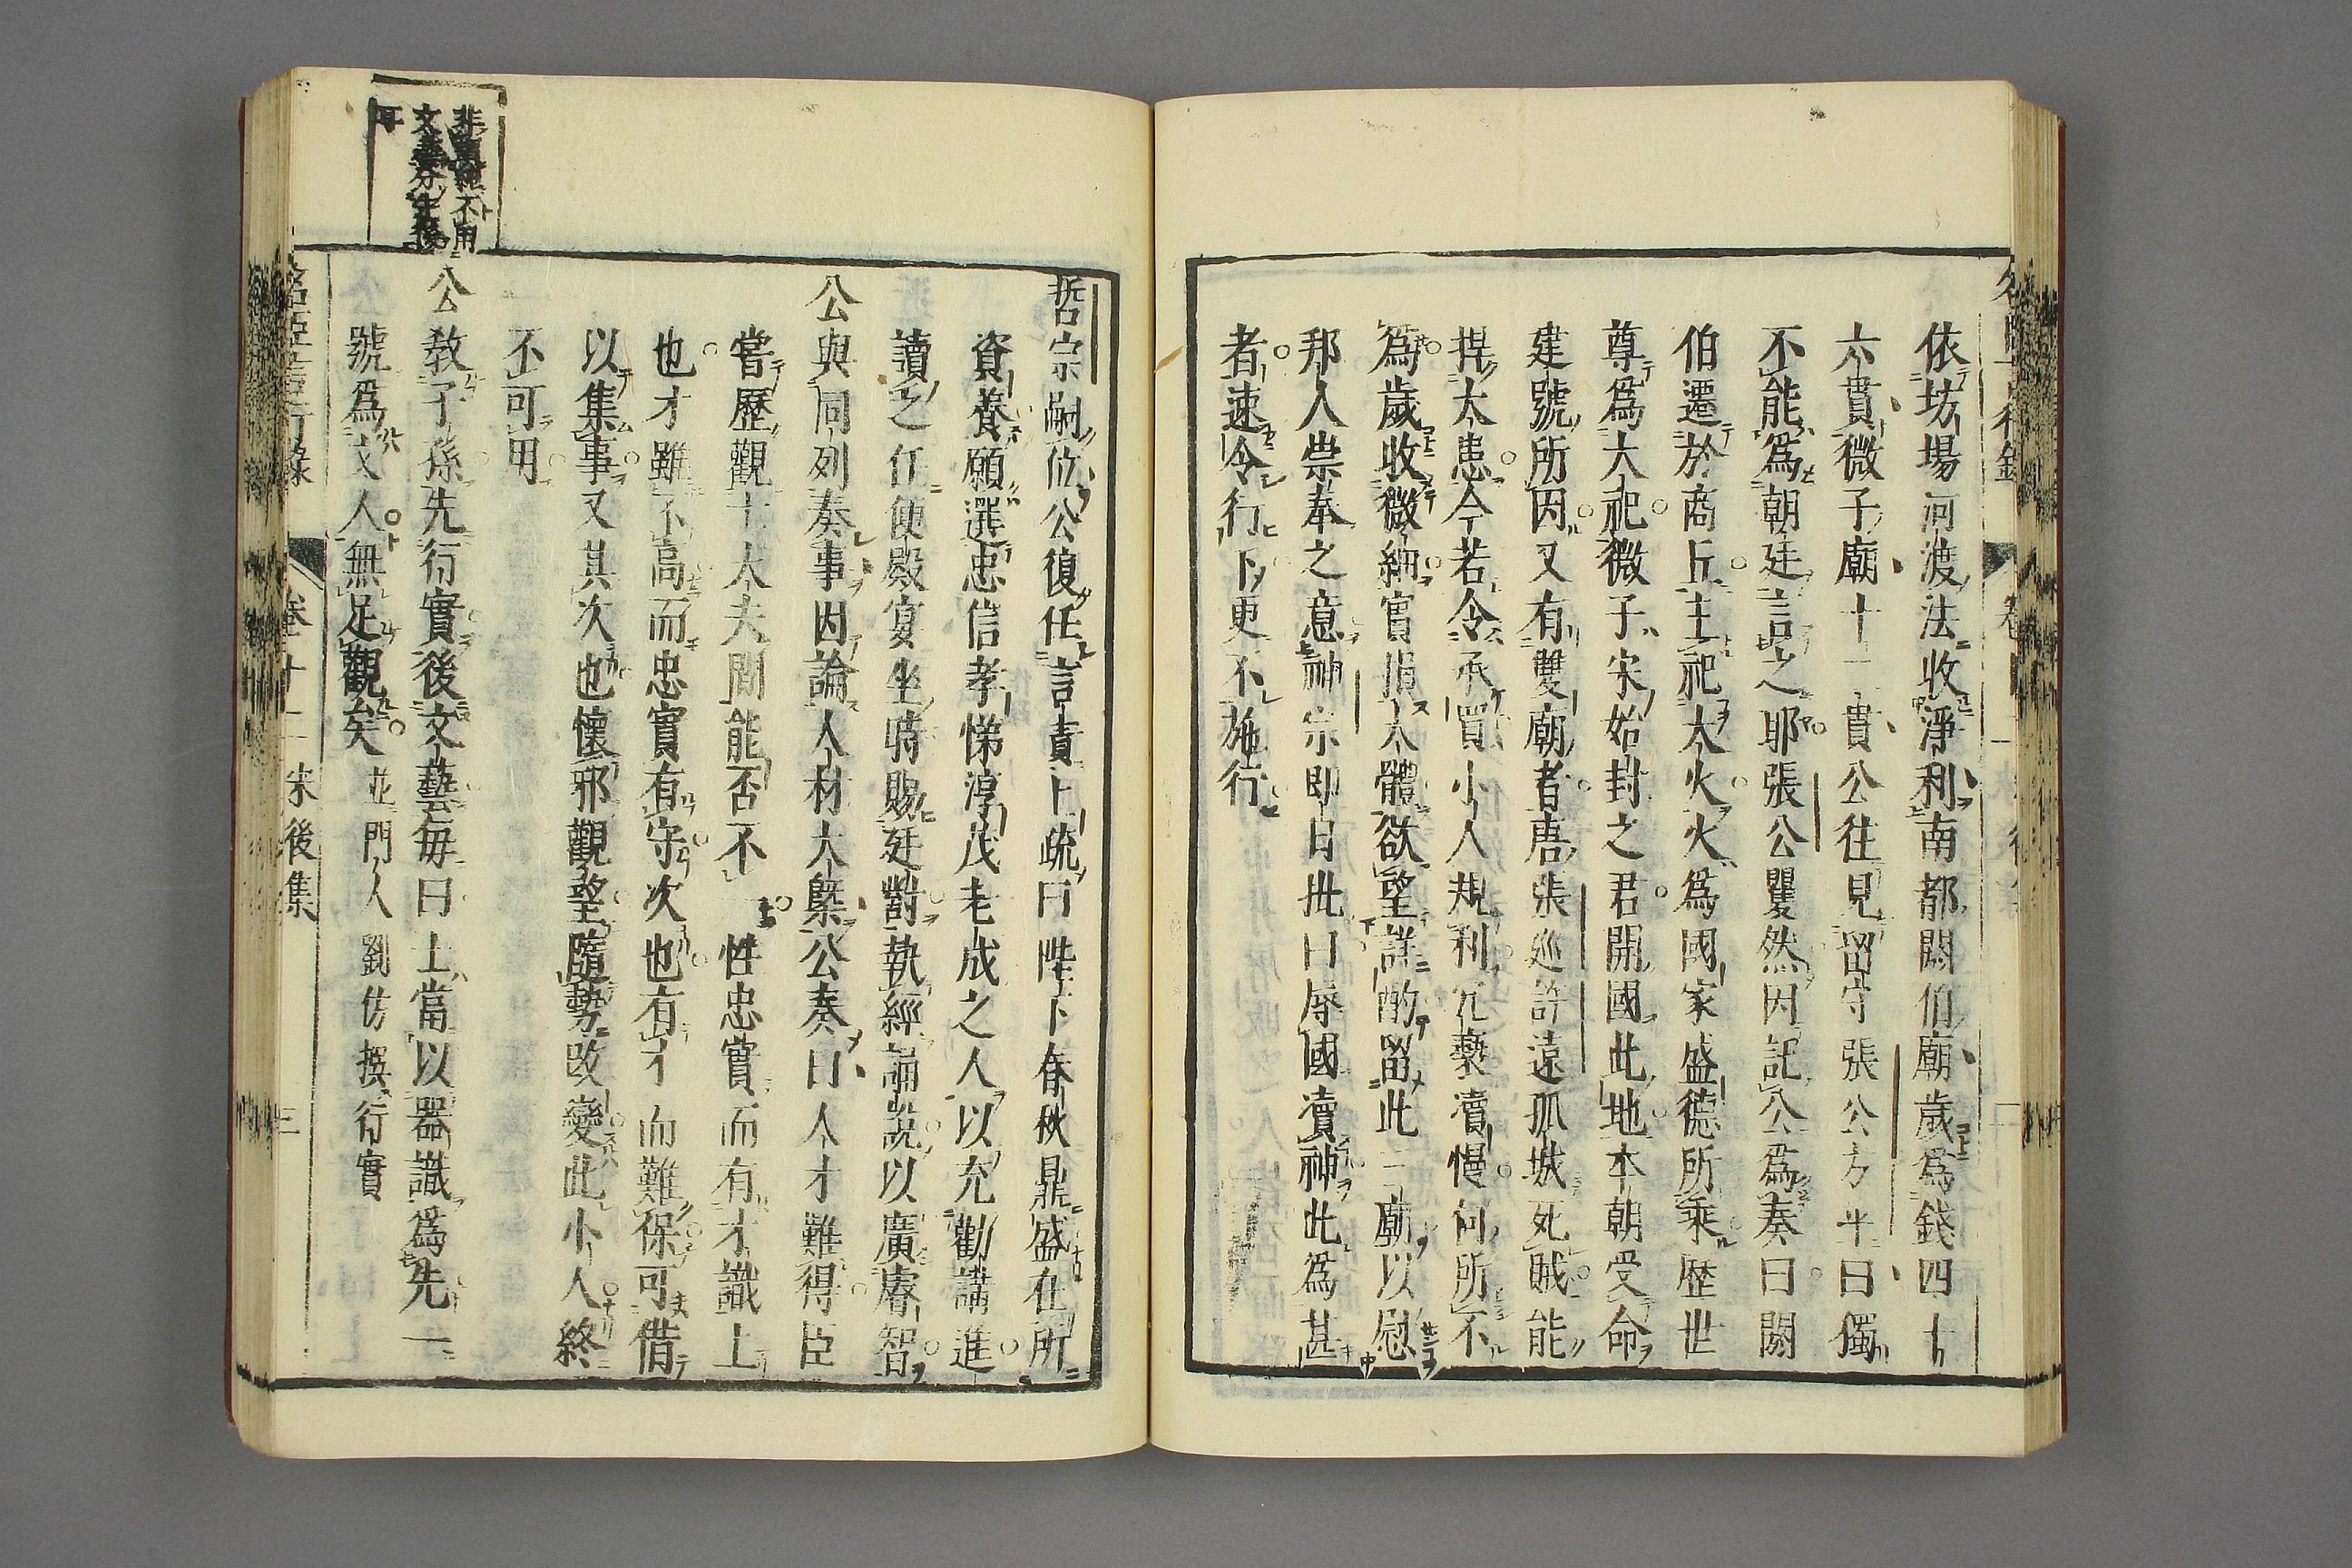 依坊場河渡法收淨利南都閼伯廟歲爲錢四十
六貫微子廟十二貫公往見留守張公方平曰獨
不能爲朝廷言之耶張公矍然因託公爲奏曰閼
伯遷於商丘主祀大火火爲國家盛德所乘歷世
尊爲大祀微子宋始封之君開國此地本朝受命
建號所因又有雙廟者唐張巡許遠孤城死賊能
捍大患今若令承買小人規利冗褻瀆慢何所不
爲歲收微細實損大體欲望詳酌留此三廟以慰
邦人崇奉之意神宗卽日批曰辱國瀆神此爲甚
者速令行下更不施行
哲宗嗣位公復任言責上疏曰陛下春秋鼎盛在所
資養願選忠信孝悌淳茂老成之人以充勸講進
讀之任便殿宴坐時賜廷對執經誦說以廣睿智
公與同列奏事因論人材大槩公奏曰人才難得臣
嘗歷觀士大夫間能否不一性忠實而有才識上
也才雖不高而忠實有守次也有才而難保可借
以集事又其次也懷邪觀望隨勢改變此小人終
不可用
公敎子孫先行實後文藝每曰士當以器識爲先一
號爲文人無足觀矣 並門人劉仿撰行實
名臣言行錄 卷十二 宋後集 三